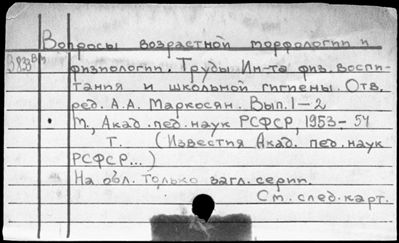 Вопросы возрастной морфологии и
физиологии. Труды Ин-та физ. воспи-
тания и школьной гигиены. Отв.
ред. А.А. Маркосян. Вып. 1-2
М., Акад. пед. наук РСФСР, 1953-54
Т. (Известия Акад. пед. наук
РСФСР...)
На обл. только загл. серии.
См. след. карт.